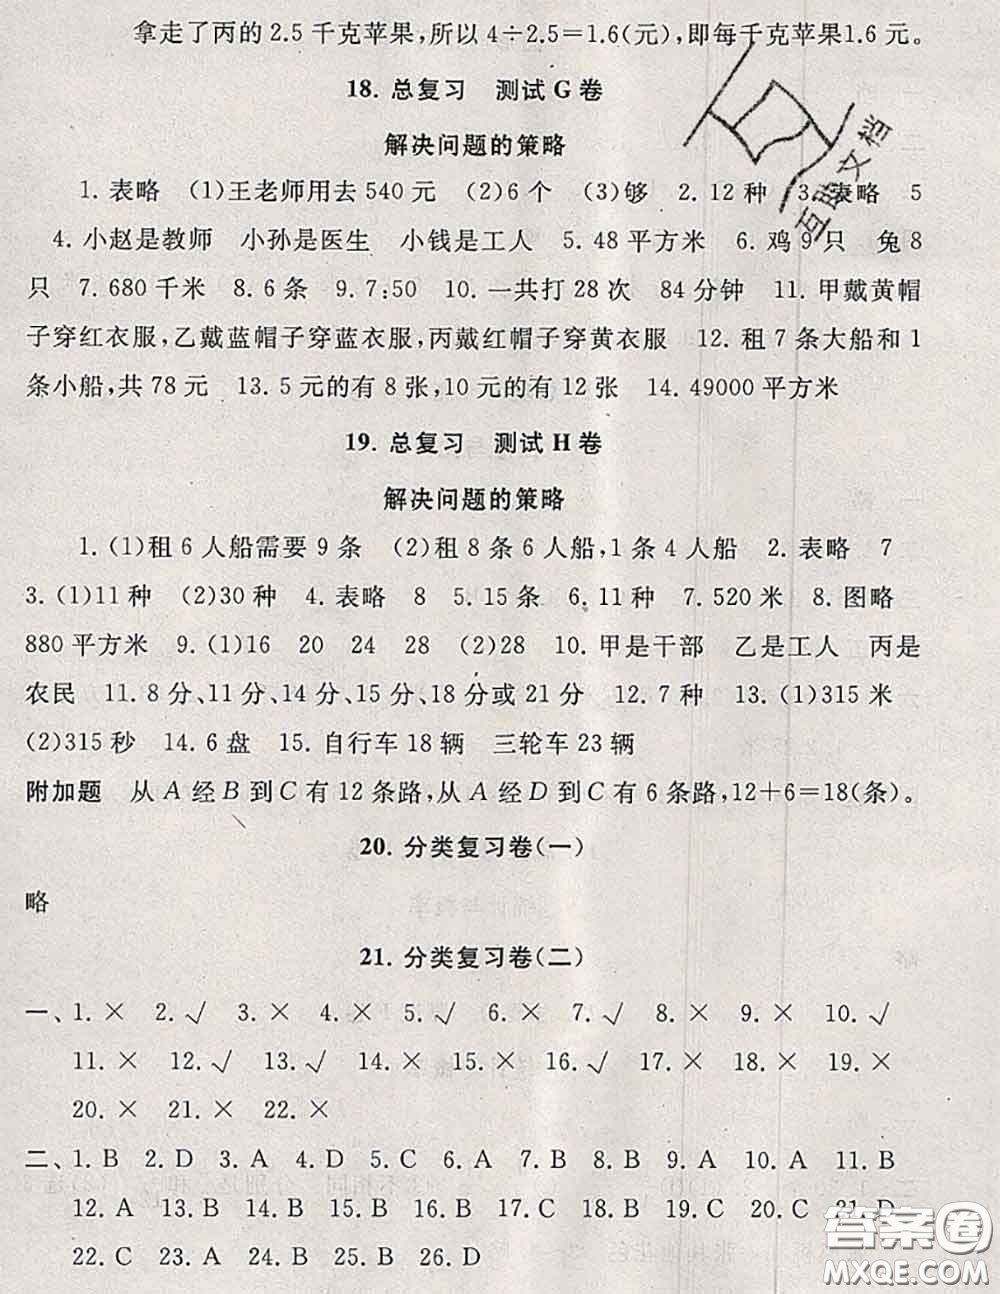 拿走了丙的 2.5 千克苹果,所以 4÷2.5=1.6(元),即每千克苹果1.6 元。
18. 总复习 测试 G 卷
解决问题的策略
1. 表略 (1)王老师用去 540 元 (2)6 个 (3)够 2. 12 种 3. 表略 5
4. 小赵是教师 小孙是医生 小钱是工人 5. 48 平方米 6. 鸡 9 只 兔 8
只 7. 680 千米 8. 6 条 9. 7:50 10. 一共打 28 次 84 分钟 11. 甲戴黄帽
子穿红衣服,乙戴蓝帽子穿蓝衣服,丙戴红帽子穿黄衣服 12. 租 7 条大船和 1
条小船,共 78 元 13. 5 元的有 8 张,10 元的有 12 张 14. 49000 平方米
19. 总复习 测试 H 卷
解决问题的策略
1. (1)租 6 人船需要 9 条 (2)租 8 条 6 人船,1 条 4 人船 2. 表略 7
3. (1)11 种 (2)30 种 4. 表略 8 5. 15 条 6. 11 种 7. 520 米 8. 图略
880 平方米 9. (1)16 20 24 28 (2)28 10. 甲是干部 乙是工人 丙是
农民 11. 8 分、11 分、14 分、15 分、18 分或 21 分 12. 7 种 13. (1)315 米
(2)315 秒 14. 6 盘 15. 自行车 18 辆 三轮车 23 辆
附加题 从 A 经 B 到 C 有 12 条路,从 A 经 D 到 C 有 6 条路,12+6=18(条)。
20. 分类复习卷(一)
略
21. 分类复习卷(二)
一、1. × 2. √ 3. × 4. × 5. √ 6. × 7. √ 8. × 9. × 10. √
11. × 12. √ 13. √ 14. × 15. × 16. √ 17. × 18. × 19. ×
20. × 21. × 22. ×
二、1. B 2. D 3. A 4. D 5. C 6. A 7. B 8. B 9. A 10. A 11. B
12. A 13. B 14. B 15. B 16. B 17. C 18. B 19. C 20. C 21. D
22. C 23. A 24. B 25. B 26. D
互助文档
答案圈
MXQE.COM